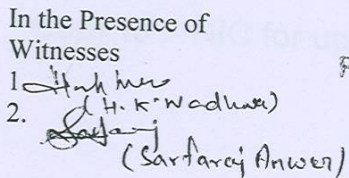 In the Presence of
Witnesses
1.
(H. K. Wadhwa)
2.
(Sarfaraj Anwer)